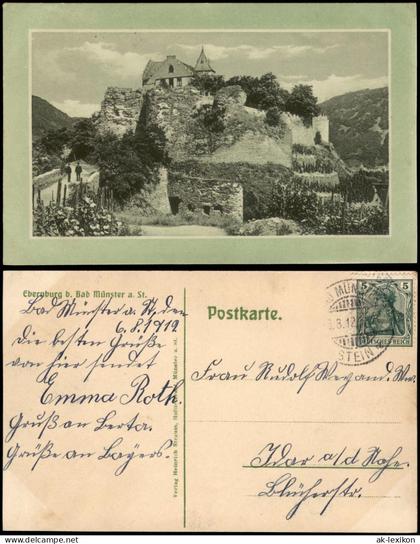 Ebernburg b. Bad Münster a. St.
Bad Münster a. St. den
6.8.1912
Die besten Grüße
von hier sendet
Emma Roth.
Gruß an Berta.
Grüße an Bayers.
Verlag Heinrich Strauss, Münster a. St.
Postkarte.
5 5
DEUTSCHES REICH
BAD MÜNSTER
STEIN
Frau Rudolf Weyand. Ww.
Idar a/d Nahe.
Blücherstr.
ak-lexikon
© ak-lexikon.com